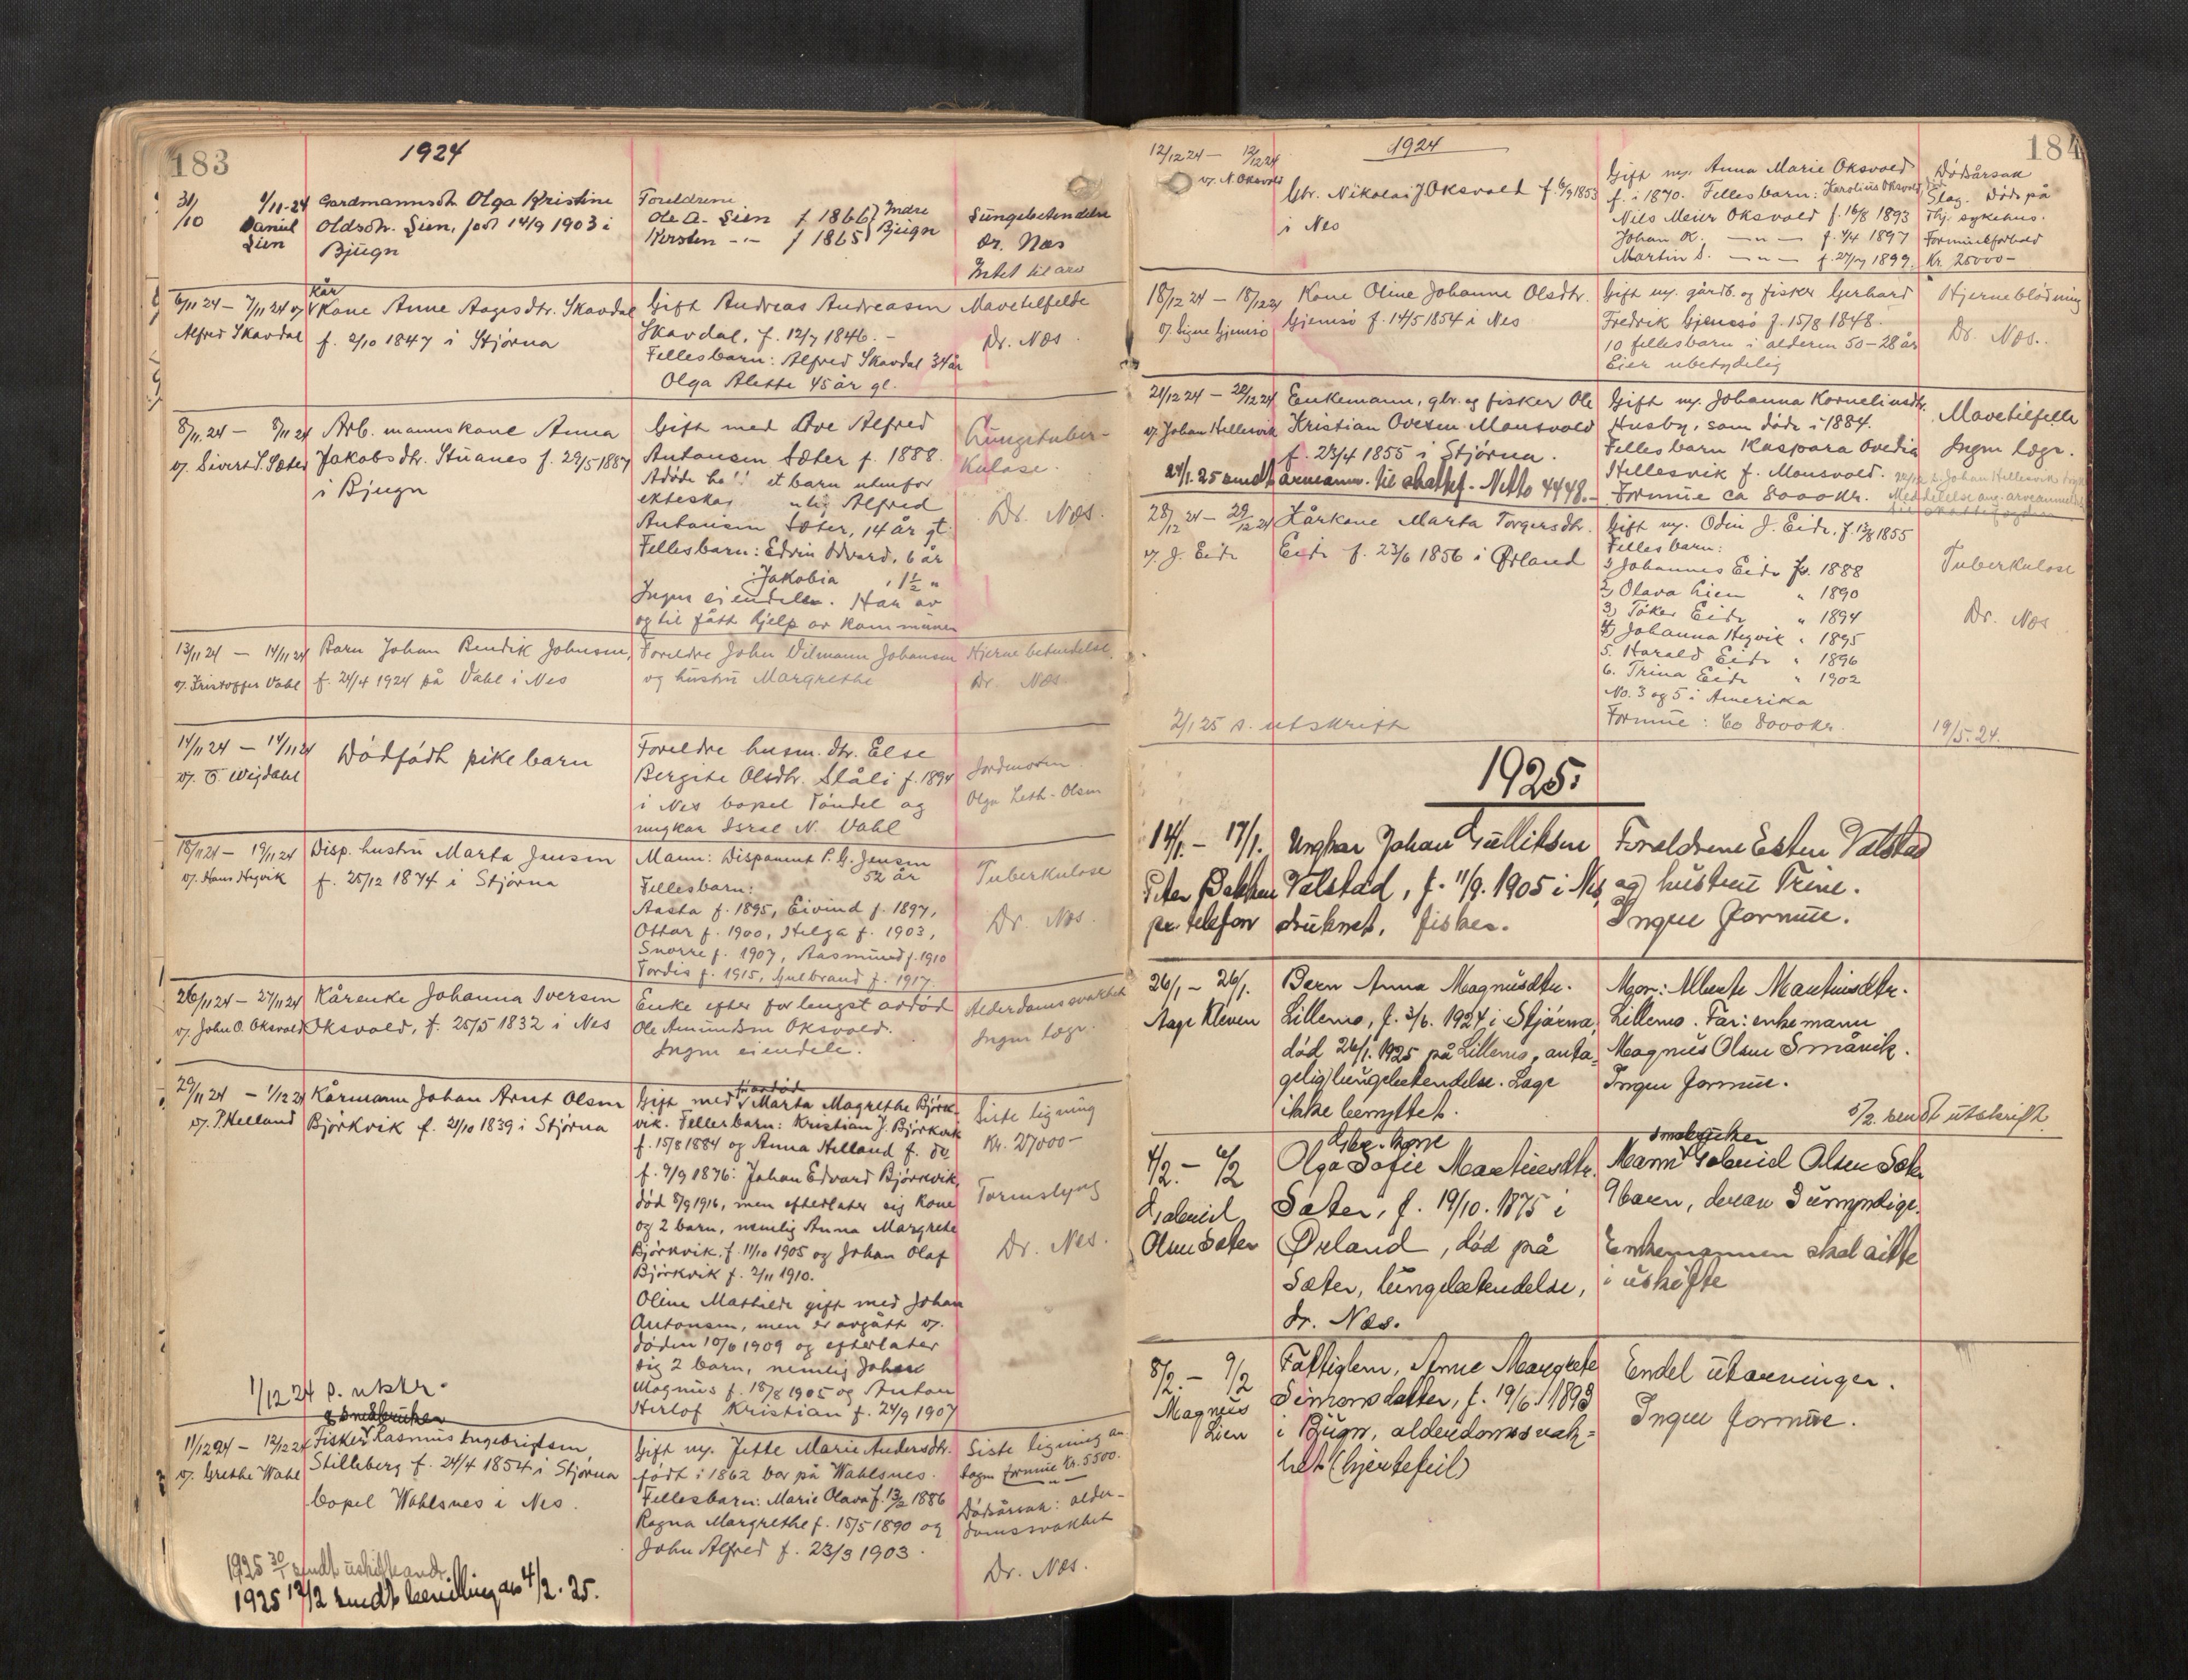 183
1924
31/10 1/11-24 Gardmannsdt Olga Kristine
Daniel Oldsdtr. Lien, født 14/9 1903 i
Lien Bjugn
Foreldrene
Ole A. Lien f 1866 } Indre
Kirsten -"- f 1865 } Bjugn
Lungebetendelse
Dr. Næs
Intet til arv
6/11 24 - 7/11 24 v/ Kår
Kone Anne Aagesdtr. Skavdal
Alfred Skavdal f. 2/10 1847 i Stjørna
Gift Andreas Andreasen
Skavdal, f. 12/7 1846. -
Fellesbarn: Alfred Skavdal 34 år
Olga Alette 45 år gl.
Mavetilfelde
Dr. Næs.
8/11 24 - 8/11 24 Arb. mannskone Anna
v/ Sivert S. Sæter Jakobsdtr. Stuanes f. 29/5 1887
i Bjugn
Gift med Ove Alfred
Antonsen Sæter f. 1888.
Adøde ha'' et barn utenfor
ekteskap nlig Alfred
Antonsen Sæter, 14 år gl.
Fellesbarn: Edvin Edvard, 6 år
Jakobia , 1 1/2 "
Ingen eiendeler. Har av
og til fått hjelp av kommunen
Lungetuber-
kulose.
Dr. Næs.
13/11 24 - 14/11 24 Barn Johan Bendik Johnsen,
v/ Kristoffer Vahl f. 24/4 1924 på Vahl i Nes
Foreldre John Vilmann Johansen
og hustru Margrethe
Hjernebetendelse
Dr Næs
14/11 24 - 14/11 24 Dødfødt pikebarn
v/ O Wigdahl
Foreldre husm.dtr. Else
Bergite Olsdtr. Ståli f. 1894
i Nes bopel Tøndel og
ungkar Isral N. Vahl
Jordmoren
Olga Leth-Olsen
18/11 24 - 19/11 24 Disp. hustru Marta Jensen
v/ Hans Hegvik f. 25/12 1874 i Stjørna
Mann: Disponent P. G. Jensen
52 år
Fellesbarn:
Aasta f. 1895, Eivind f. 1897,
Ottar f. 1900, Helga f. 1903,
Snorre f. 1907, Aasmund f. 1910
Tordis f. 1915, Gulbrand f. 1917.
Tuberkulose
Dr. Næs.
26/11 24 - 27/11 24 Kårenke Johanna Iversen
v/ John O. Oksvold Oksvold, f. 25/5 1832 i Nes
Enke efter for lengst avdød
Ole Amundsen Oksvold.
Ingen eiendele.
Alderdomssvakhet
Ingen læge.
29/11 24 - 1/12 24 Kårmann Johan Arnt Olsen
v/ P. Helland Bjørkvik f. 21/10 1839 i Stjørna
Gift med Marta Magrethe Bjørk-
vik. Fellesbarn: Kristian J. Bjørkvik
f. 15/8 1884 og Anna Helland f. do
f. 9/9 1876: Johan Edvard Bjørkvik,
død 8/9 1916, men efterlater sig kone
og 2 barn, nemlig Anna Margrete
Bjørkvik. f. 11/10 1905 og Johan Olaf
Bjørkvik f. 2/11 1910.
Oline Mathilde gift med Johan
Antonsen, men er avgått v/
døden 10/6 1909 og efterlater
sig 2 barn, nemlig Johan
Magnus f. 18/8 1905 og Anton
Herlof Kristian f. 24/9 1907
Siste ligning
Kr. 27000-
Tarmslyng
Dr. Nes.
1/12 24 s. utskr.
& småbruker
11/12 24 - 12/12 24 Fisker Rasmus Ingebrigtsen
v/ Grethe Wahl Stilleberg f. 24/4 1854 i Stjørna
bopel Wahlsnes i Nes.
Gift m/ Jette Marie Andersdtr.
født i 1862 bor på Wahlsnes.
Fellesbarn: Marie Olava f. 13/2 1886
Ragna Margrethe f. 15/5 1890 og
John Alfred f. 23/3 1903.
Siste ligning an
tagen formue kr. 5500.
Dødsårsak: alder-
domssvakhet
Dr. Næs.
1925 30/1 sendt uskifteandr.
1925 12/2 sendt bevilling av 4/2. 25.
184
1924
12/12 24 - 12/12 24
v/ N. Oksvold
Gbr. Nikolai J Oksvold f. 6/9 1853
i Nes
Gift m/ Anna Marie Oksvold
f. i 1870. Fellesbarn: Karolius Oksvold,
Nils Meier Oksvold f. 16/8 1893
Johan O. -"- f. 4/4 1897
Martin S. -"- f. 27/7 1899.
Dødsårsak
Slag. Døde på
Thj. sykehus.
Formuesforhold
Kr. 25000-
18/12 24 - 18/12 24 Kone Oline Johanna Olsdtr.
v/ Signe Gjemsø Gjemsø f. 14/5 1854 i Nes
Gift m/ gårdb. og fisker Gerhard
Fredrik Gjemsø f. 15/8 1848.
10 fellesbarn i alderen 50-28 år
Eier ubetydelig
Hjerneblødning
Dr. Næs.
21/12 24 - 22/12 24 Enkemann, gbr. og fisker Ole
v/ Johan Hellesvik Kristian Ovesen Monsvold
f. 23/4 1855 i Stjørna.
24/1. 25 sendt arveanm. til skattef. - Netto 4448.-
Gift m/ Johanna Korneliusdtr.
Husby, som døde i 1884.
Fellesbarn Kaspara Ovedia
Hellesvik f. Monsvold.
Formue ca 8000 kr.
Mavetilfelle
Ingen læge.
28/12 24 - 29/12 24 Kårkone Marta Torgersdtr.
v/ J. Eide Eide f. 23/6 1856 i Ørland
Gift m/ Odin J. Eide, f. 13/8 1855
Fellesbarn:
1) Johannes Eide fv. 1888
2) Olava Lien " 1890
3) Tøker Eide " 1894
4) Johanna Hegvik " 1895
5. Harald Eide " 1896
6. Trina Eide " 1902
No. 3 og 5 i Amerika
Formue: Ca 8000 kr.
Tuberkulose
Dr. Næs
2/1 25 s. utskrift
19/5. 24.
1925.
14/1. - 17/1. Ungkar Johan Gulliksen
Peter Bakken Valstad, f. 11/9. 1905 i Nes,
pr. telefon druknet, fisker.
Foreldrene Esten Valstad
og hustru Trine.
Ingen formue.
26/1 - 26/1. Barn Anna Magnusdtr.
Aage Kleven Lillemo, f. 3/6. 1924 i Stjørna,
død 26/1. 1925 på Lillemo, anta-
gelig lungebetendelse. Læge
ikke benyttet.
Mor: Alberte Martinusdtr.
Lillemo. Far: enkemann
Magnus Olsen Småvik.
Ingen formue.
5/2. sendt utskrift
4/2. - 6/2 Gbr. kone
Olga Sofie Martinusdtr.
Gabriel Sæter, f. 19/10. 1875 i
Olsen Sæter Ørland, død på
Sæter, lungebetendelse,
dr. Næs.
småbruker
Mann Gabriel Olsen Sæter
9 barn, derav 3 umyndige.
Enkemannen skal sitte
i uskifte
8/2. - 9/2 Fattiglem, Anne Margrete
Magnus Simonsdatter, f. 19/6. 1893
Lien i Bjugn, alderdomssvak-
het (hjertefeil)
Endel utarvinger.
Ingen formue.